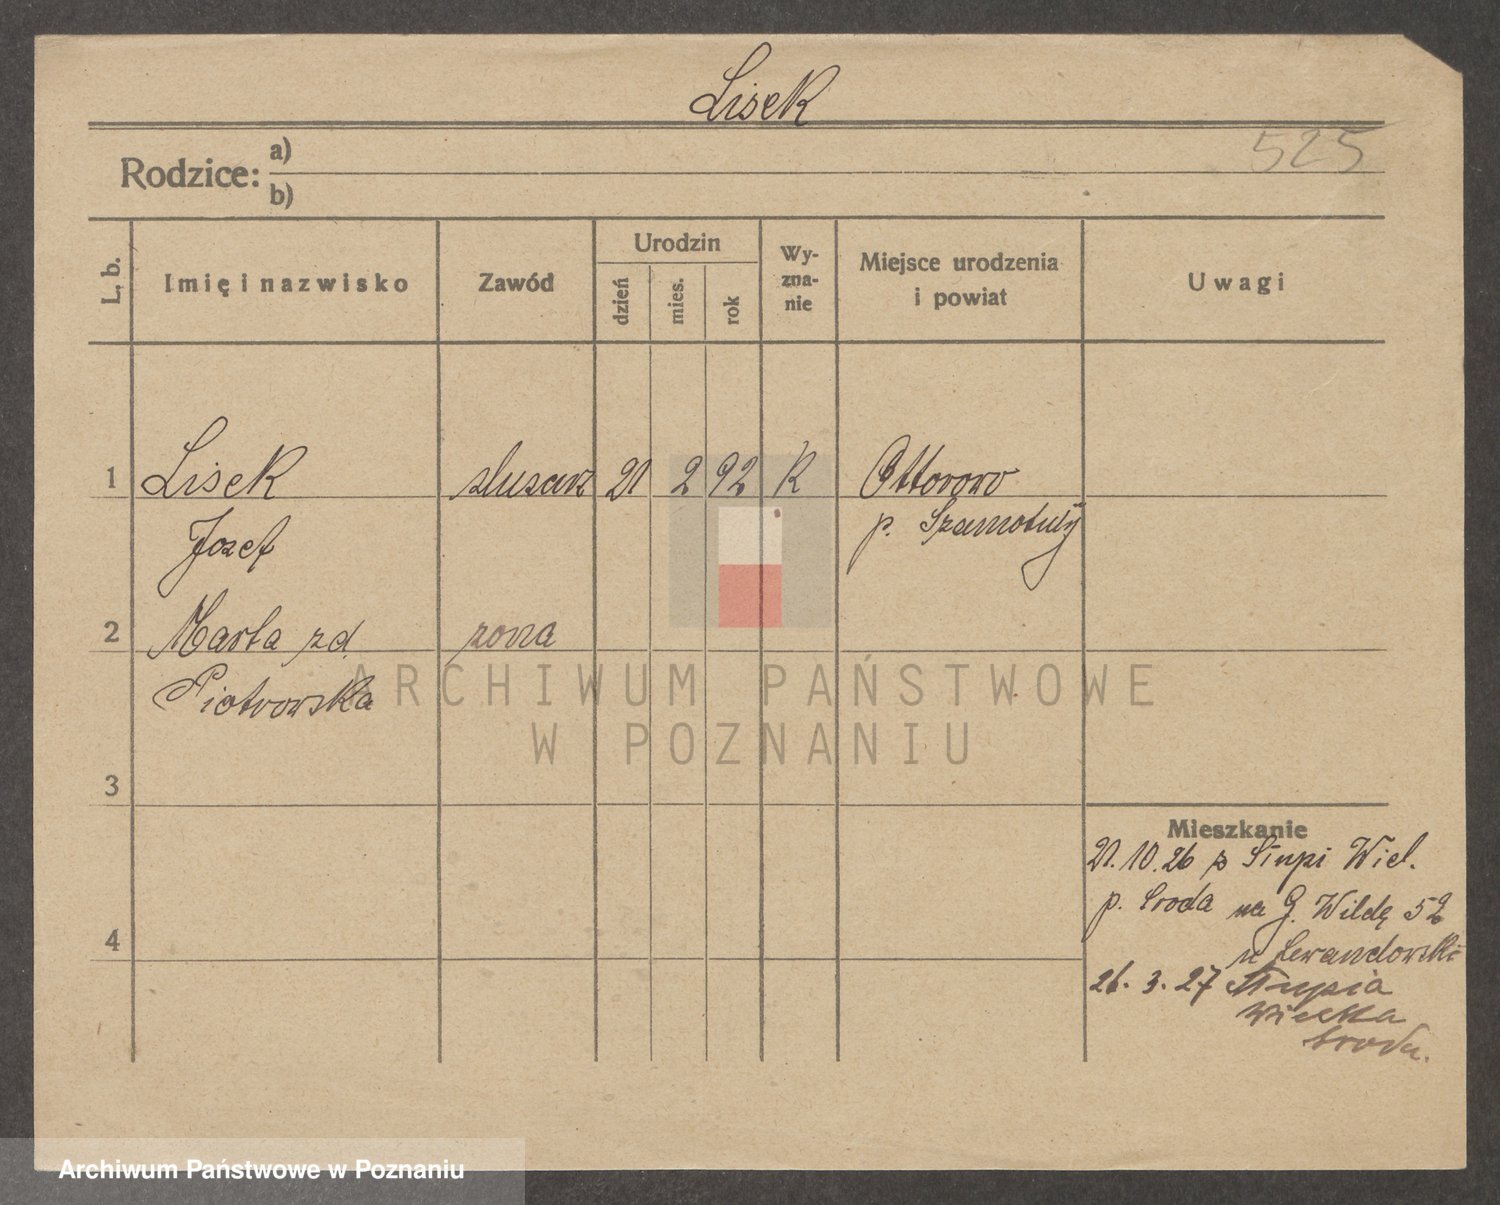 Lisek
525
Rodzice: a)
b)
L. b.
Imię i nazwisko
Zawód
Urodzin
dzień
mies.
rok
Wy-
zna-
nie
Miejsce urodzenia
i powiat
Uwagi
1 Lisek slusarz 21 2 92 K Ottorowo
Jozef p. Szamotuły
2 Marta zd. zona
Piotrowska
3
4
Mieszkanie
21. 10. 26 z Slupi Wiel.
p. Sroda na G. Wildę 52
u Lewandowski
26. 3. 27 Slupia
Wielka
Sroda.
ARCHIWUM PAŃSTWOWE
W POZNANIU
Archiwum Państwowe w Poznaniu